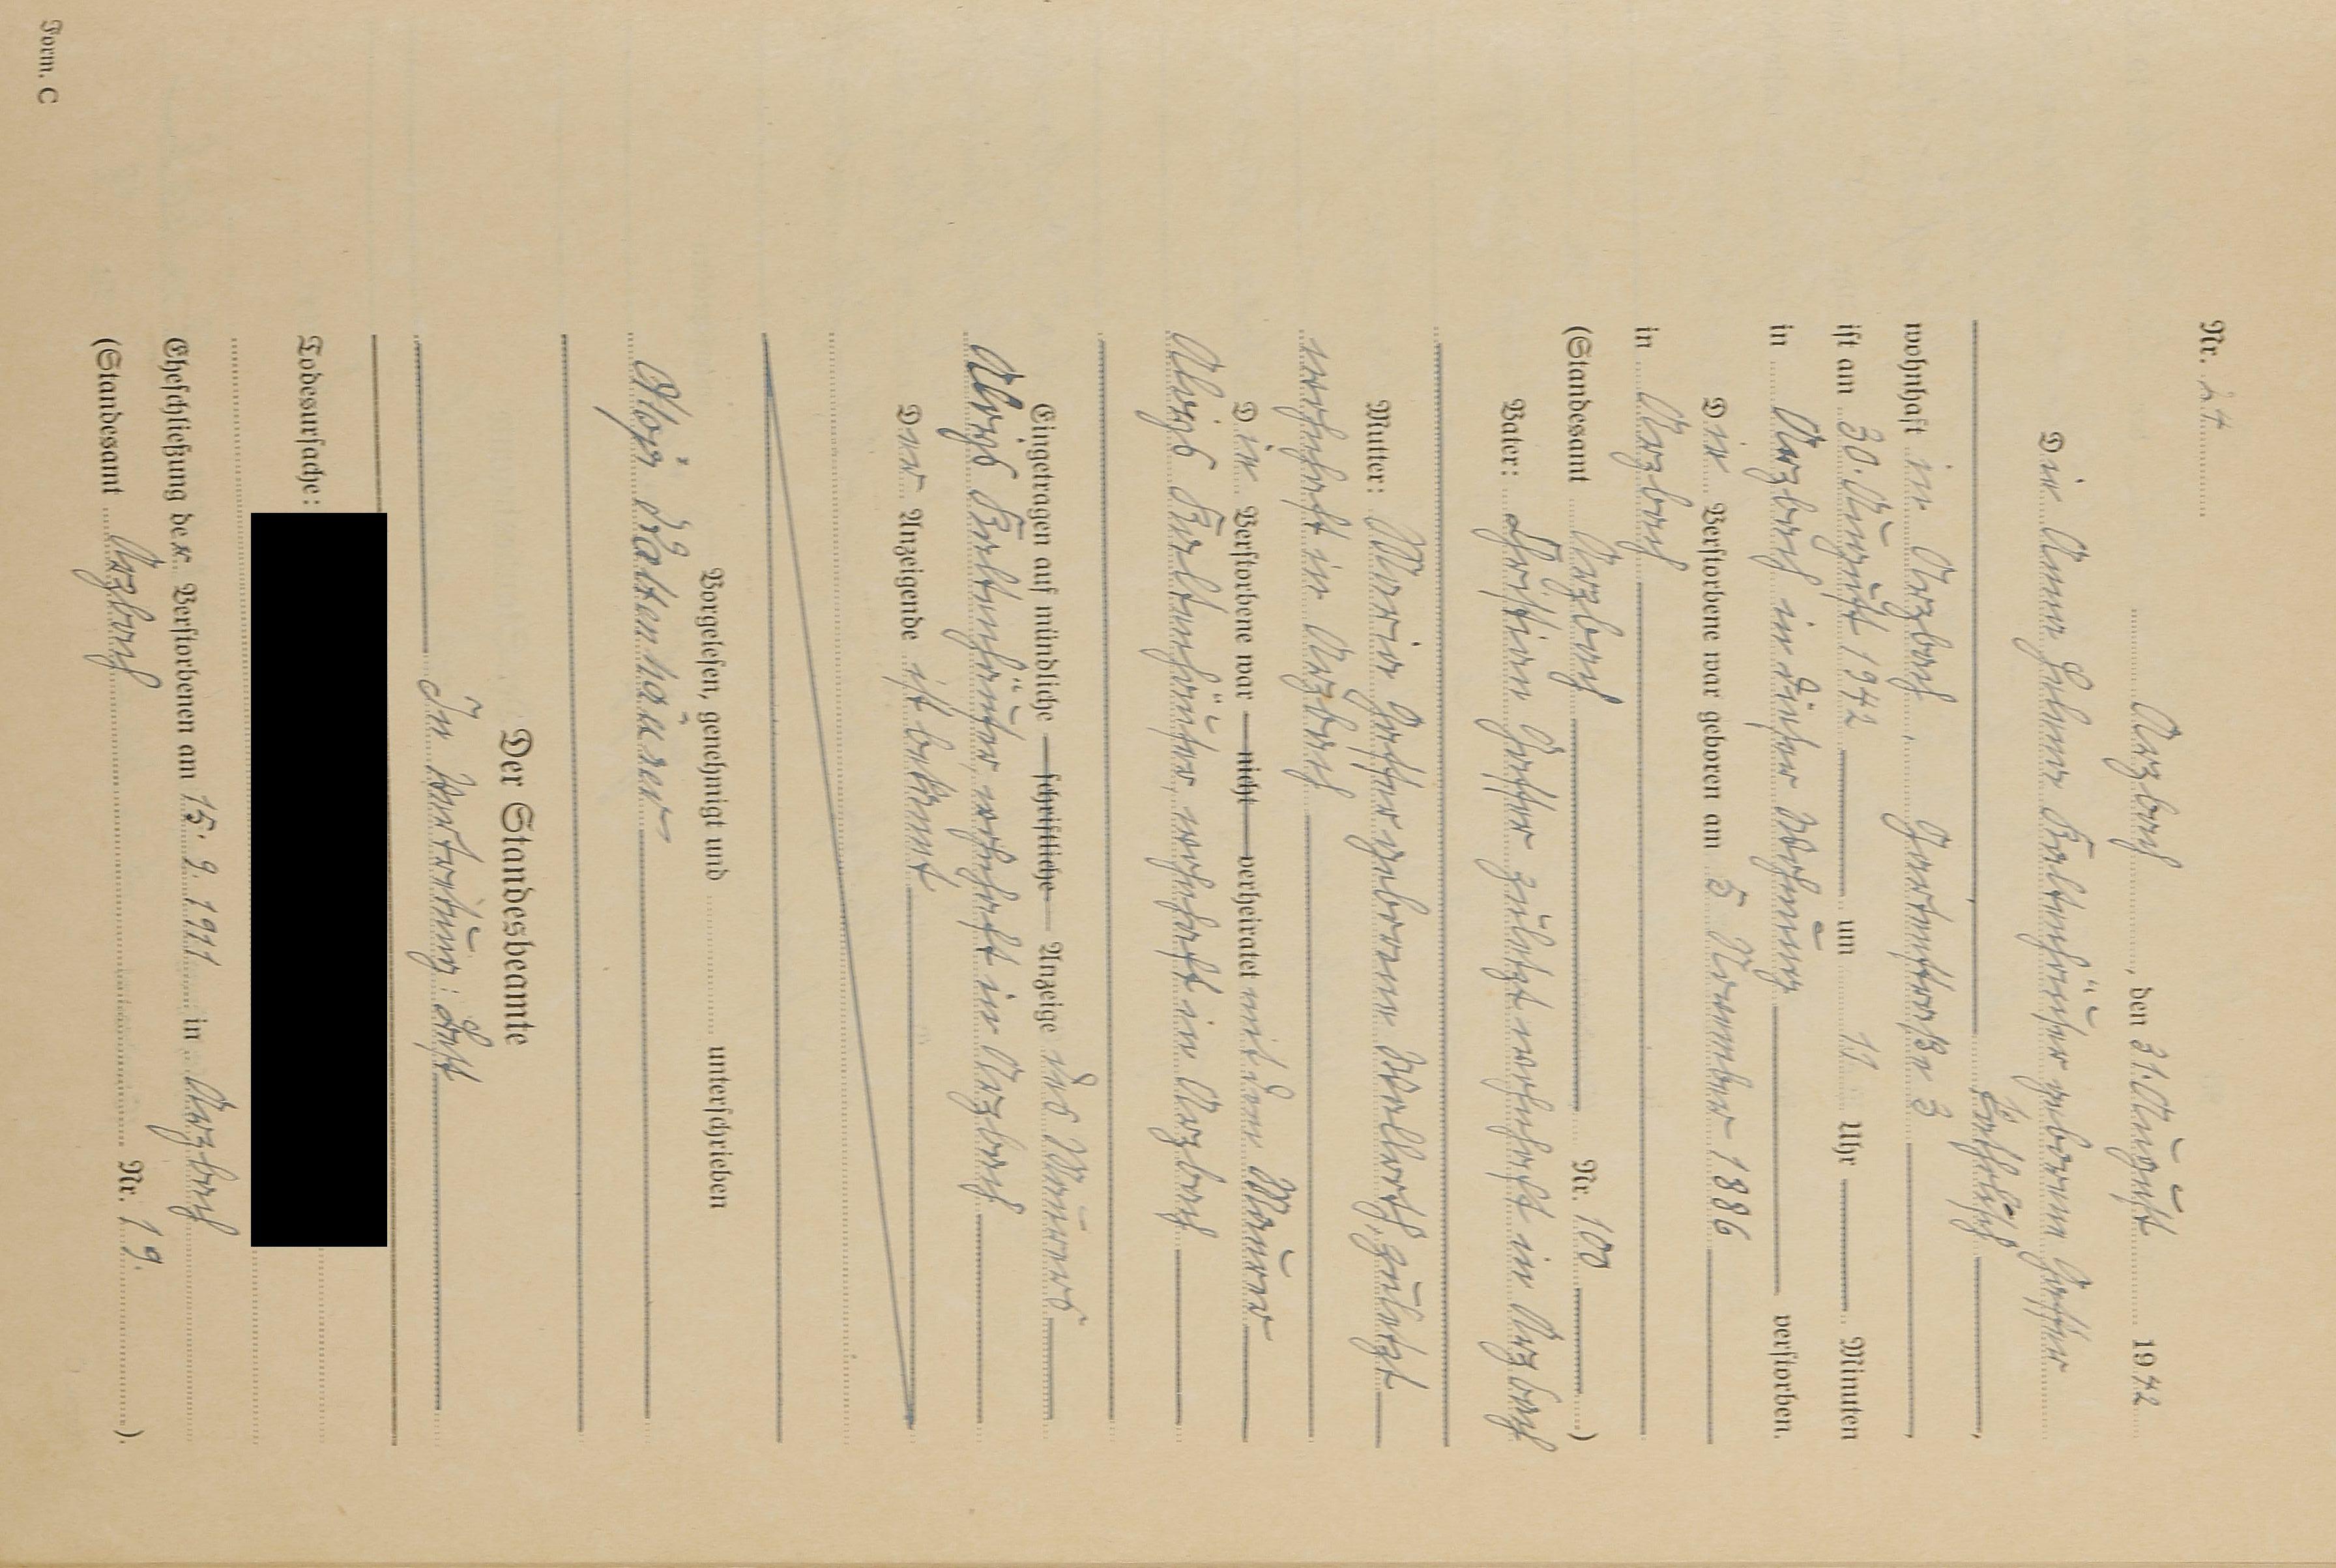 Nr. 24
Arzberg, den 31. August 1942
Die Anna Helena Kaltenhäuser geborene Gesser
katholisch,
wohnhaft in Arzberg, Gartenstraße 3,
ist am 30. August 1942 um 11 Uhr Minuten
in Arzberg in dieser Wohnung verstorben.
Die Verstorbene war geboren am 5. November 1886
in Arzberg
(Standesamt Arzberg Nr. 100)
Vater: Christian zuletzt wohnhaft in Arzberg
Mutter: Maria geborene zuletzt
wohnhaft in Arzberg
Die Verstorbene war nicht verheiratet mit dem Maurer
Alois Kaltenhäuser, wohnhaft in Arzberg
Eingetragen auf mündliche schriftliche Anzeige des Maurers
Alois Kaltenhäuser, wohnhaft in Arzberg
Der Anzeigende ist bekannt.
Vorgelesen, genehmigt und unterschrieben
Alois Kaltenhäuser
Der Standesbeamte
In Vertretung:
Todesursache:
Eheschließung der Verstorbenen am 15. 9. 1911 in Arzberg
(Standesamt Arzberg Nr. 19.).
Form. C